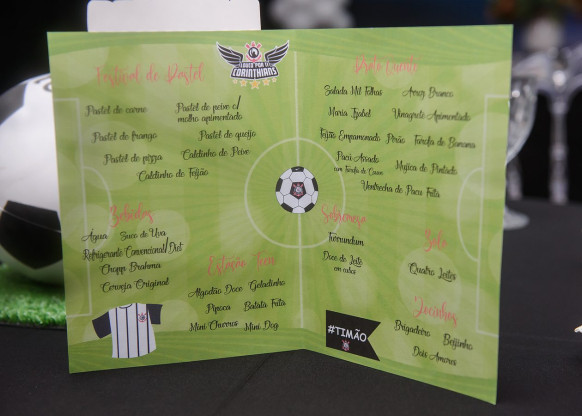 LOUCO POR TI
CORINTHIANS
Festival de Pastel
Pastel de carne
Pastel de peixe c/
molho apimentado
Pastel de frango
Pastel de queijo
Pastel de pizza
Caldinho de Peixe
Caldinho de Feijão
Bebidas
Agua
Suco de Uva
Refrigerante Convencional/Diet
Chopp Brahma
Cerveja Original
Estação Teen
Algodão Doce
Geladinho
Pipoca
Batata Frita
Mini Churros
Mini Dog
Prato Quente
Salada Mil Folhas
Arroz Branco
Maria Izabel
Vinagrete Apimentado
Feijão Empamonado
Pirão
Farofa de Banana
Pacú Assado
com Farofa de Couve
Mujica de Pintado
Ventrecha de Pacu Frita
Sobremesa
Furrundum
Doce de Leite
em cubos
Bolo
Quatro Leites
Docinhos
Brigadeiro
Beijinho
Dois Amores
#TIMÃO